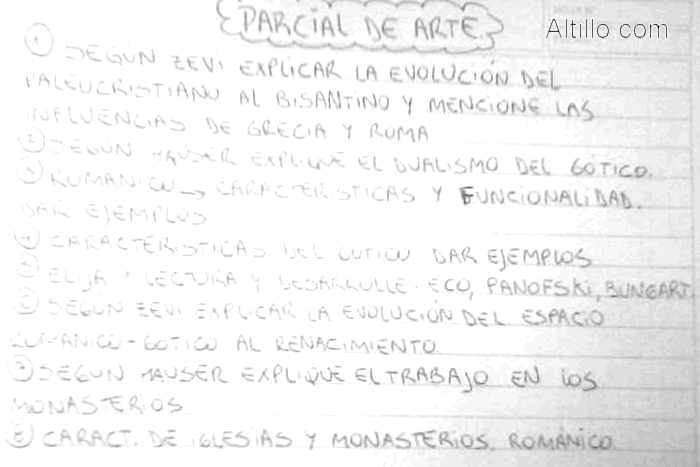 PARCIAL DE ARTE
Altillo com
① SEGÚN ZEVI EXPLICAR LA EVOLUCIÓN DEL
PALEOCRISTIANO AL BISANTINO Y MENCIONE LAS
INFLUENCIAS DE GRECIA Y ROMA
② SEGÚN HAUSER EXPLIQUE EL DUALISMO DEL GOTICO.
③ ROMANICO → CARACTERISTICAS Y FUNCIONALIDAD.
DAR EJEMPLOS
④ CARACTERISTICAS DEL GOTICO DAR EJEMPLOS
⑤ ELIJA 1 LECTURA Y DESARROLLE. ECO, PANOFSKI, BUNGART.
⑥ SEGÚN ZEVI EXPLICAR LA EVOLUCIÓN DEL ESPACIO
ROMANICO-GOTICO AL RENACIMIENTO
⑦ SEGUN HAUSER EXPLIQUE EL TRABAJO EN LOS
MONASTERIOS
⑧ CARACT. DE IGLESIAS Y MONASTERIOS. ROMÁNICO